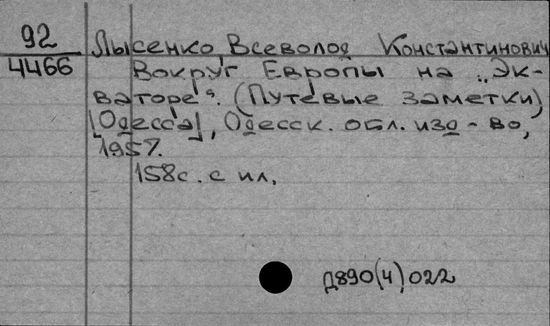 92
4466
Лысенко Всеволод Константинович
Вокруг Европы на „Эк-
ваторе“. (Путевые заметки)
[Одесса], Одесск. обл. изд-во,
1957.
158с. с ил.
Д890(4)022